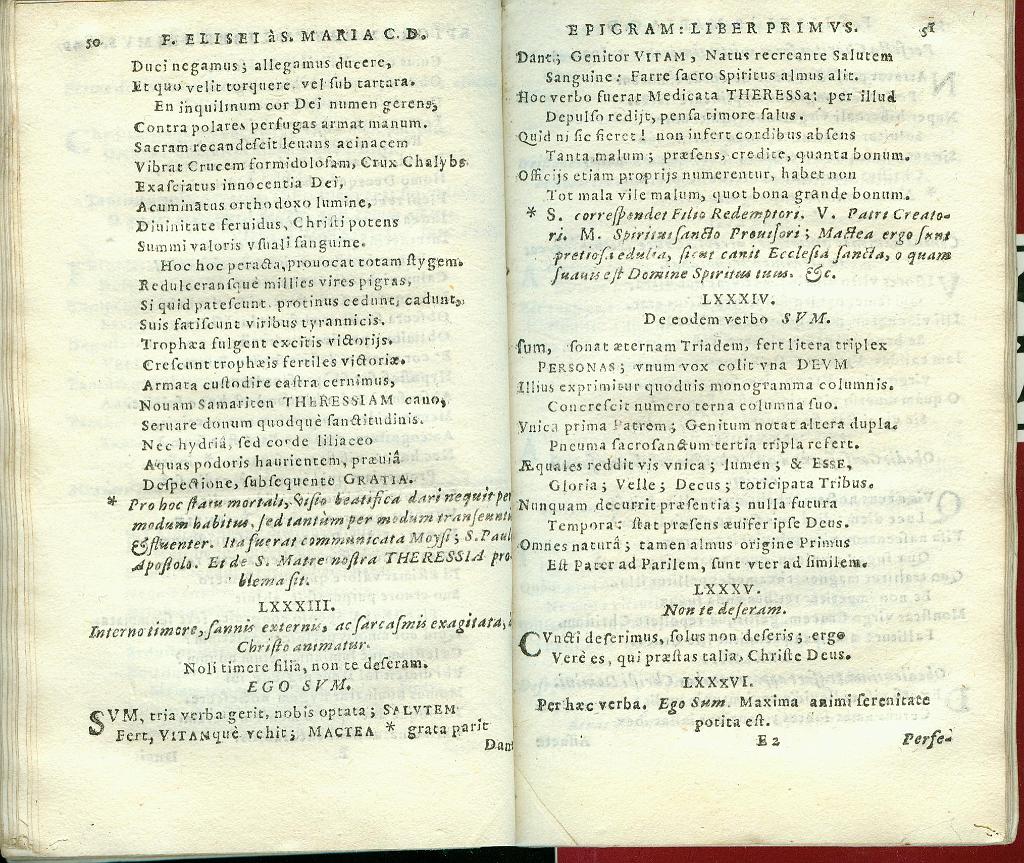 50 F. ELISEI à S. MARIA C. D.
Duci negamus; allegamus ducere,
Et quo velit torquere, vel sub tartara.
En inquilinum cor Dei numen gerens,
Contra polares perfugas armat manum.
Sacram recandescit leuans acinacem
Vibrat Crucem formidolosam, Crux Chalybs
Exasciatus innocentia Dei,
Acuminatus orthodoxo lumine,
Diuinitate feruidus, Christi potens
Summi valoris vsuali sanguine.
Hoc hoc peracta, prouocat totam stygem.
Redulceransque millies vires pigras,
Si quid patescunt, protinus cedunt, cadunt,
Suis fatiscunt viribus tyrannicis.
Trophæa fulgent excitis victorijs.
Crescunt trophæis fertiles victoriæ.
Armata custodire castra cernimus,
Nouam Samariten THERESSIAM cano,
Seruare donum quodquè sanctitudinis.
Nec hydriâ, sed corde liliaceo
Aquas podoris haurientem, præuiâ
Despectione, subsequente GRATIA.
* Pro hoc statu mortali, visio beatifica dari nequit per
modum habitus, sed tantùm per modum transeuntis
& fluenter. Ita fuerat communicata Moysi; S. Paulo
Apostolo. Et de S. Matre nostra THERESSIA pro
blema sit.
LXXXIII.
Interno timore, sannis externis, ac sarcasmis exagitata, à
Christo animatur.
Noli timere filia, non te deseram.
EGO SVM.
SVM, tria verba gerit, nobis optata; SALVTEM
Fert, VITAMquè vehit; MACTEA * grata parit
Dant
EPIGRAM: LIBER PRIMVS. 51
Dant; Genitor VITAM, Natus recreante Salutem
Sanguine; Farre sacro Spiritus almus alit.
Hoc verbo fuerat Medicata THERESSA; per illud
Depulso redijt, pensa timore salus.
Quid ni sic fieret! non infert cordibus absens
Tanta malum; præsens, credite, quanta bonum.
Officijs etiam proprijs numerentur, habet non
Tot mala vile malum, quot bona grande bonum.
* S. correspondet Filio Redemptori. V. Patri Creato-
ri. M. Spiritui sancto Prouisori; Mactea ergo sunt
pretiosa edulia, sicut canit Ecclesia sancta, o quam
suauis est Domine Spiritus tuus. &c.
LXXXIV.
De eodem verbo SVM.
Sum, sonat æternam Triadem, fert litera triplex
PERSONAS; vnum vox colit vna DEVM
Illius exprimitur quoduis monogramma columnis.
Concrescit numero terna columna suo.
Vnica prima Patrem; Genitum notat altera dupla.
Pneuma sacrosanctum tertia tripla refert.
Æquales reddit vis vnica; lumen; & ESSE,
Gloria; Velle; Decus; toticipata Tribus.
Nunquam decurrit præsentia; nulla futura
Tempora: stat præsens æuifer ipse Deus.
Omnes naturâ; tamen almus origine Primus
Est Pater ad Parilem, sunt vter ad similem.
LXXXV.
Non te deseram.
CVncti deserimus, solus non deseris; ergo
Verè es, qui præstas talia, Christe Deus.
LXXXVI.
Per hæc verba. Ego Sum. Maxima animi serenitate
potita est.
E2 Perfe-